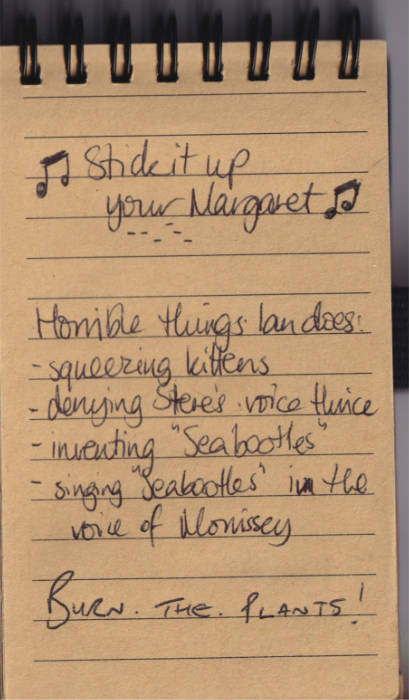 ♫ Stick it up
your Margaret ♫
Horrible things Ian does:
- squeezing kittens
- denying Steve's voice thrice
- inventing "Seabootles"
- singing "Seabootles" in the
voice of Morrissey
BURN. THE. PLANTS!